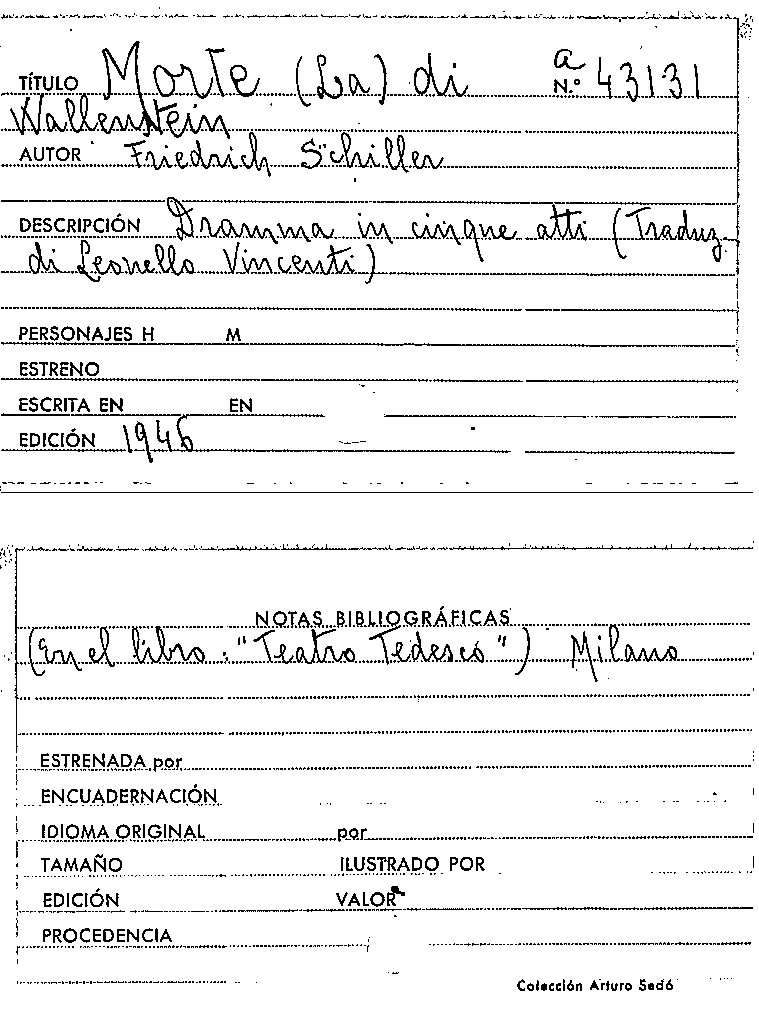 TÍTULO Morte (La) di a N.º 43131
Wallenstein
AUTOR Friedrich Schiller
DESCRIPCIÓN Dramma in cinque atti (Traduz.
di Leonello Vincenti)
PERSONAJES H M
ESTRENO
ESCRITA EN EN
EDICIÓN 1946
NOTAS BIBLIOGRÁFICAS
(En el libro: "Teatro Tedesco") Milano
ESTRENADA por
ENCUADERNACIÓN
IDIOMA ORIGINAL por
TAMAÑO ILUSTRADO POR
EDICIÓN VALOR
PROCEDENCIA
Colección Arturo Sedó